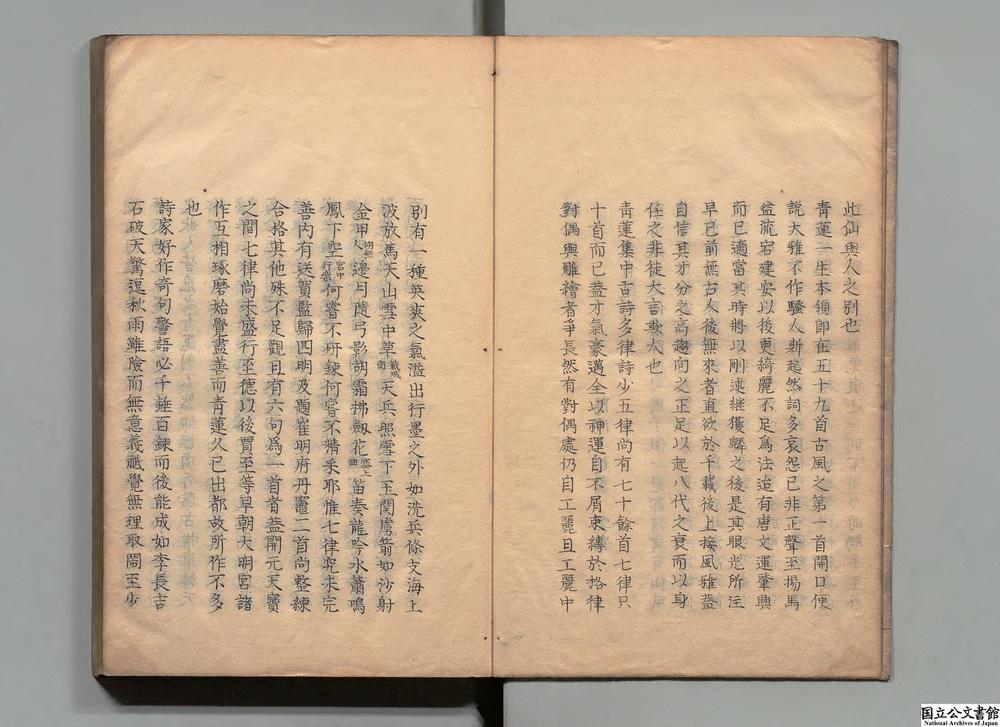 此仙與人之別也
青蓮一生本領即在五十九首古風之第一首開口便
說大雅不作騷人斯起然詞多哀怨已非正聲至揚馬
益流宕建安以後更綺麗不足為法迨有唐文運肇興
而己適當其時將以刪述繼獲麟之後是其眼光所注
早已前無古人後無來者直欲於千載後上接風雅蓋
自信其才分之高趨向之正足以起八代之衰而以身
任之非徒大言欺人也
青蓮集中古詩多律詩少五律尚有七十餘首七律只
十首而已蓋才氣豪邁全以神運自不屑束縛於格律
對偶與雕繪者爭長然有對偶處仍自工麗且工麗中
別有一種英爽之氣溢出行墨之外如洗兵條支海上
波放馬天山雪中草戰城南天兵照雪下玉關虜箭如沙射
金甲胡無人邊月隨弓影胡霜拂劍花塞上曲笛奏龍吟水簫鳴
鳳下空宮中行樂何嘗不研鍊何嘗不精采耶惟七律究未完
善內有送賀監歸四明及題崔明府丹竈二首尚整練
合格其他殊不足觀且有六句為一首者蓋開元天寶
之間七律尚未盛行至德以後賈至等早朝大明宮諸
作互相琢磨始覺盡善而青蓮久已出都故所作不多
也
詩家好作奇句警語必千錘百鍊而後能成如李長吉
石破天驚逗秋雨雖險而無意義祗覺無理取鬧至少
国立公文書館
National Archives of Japan